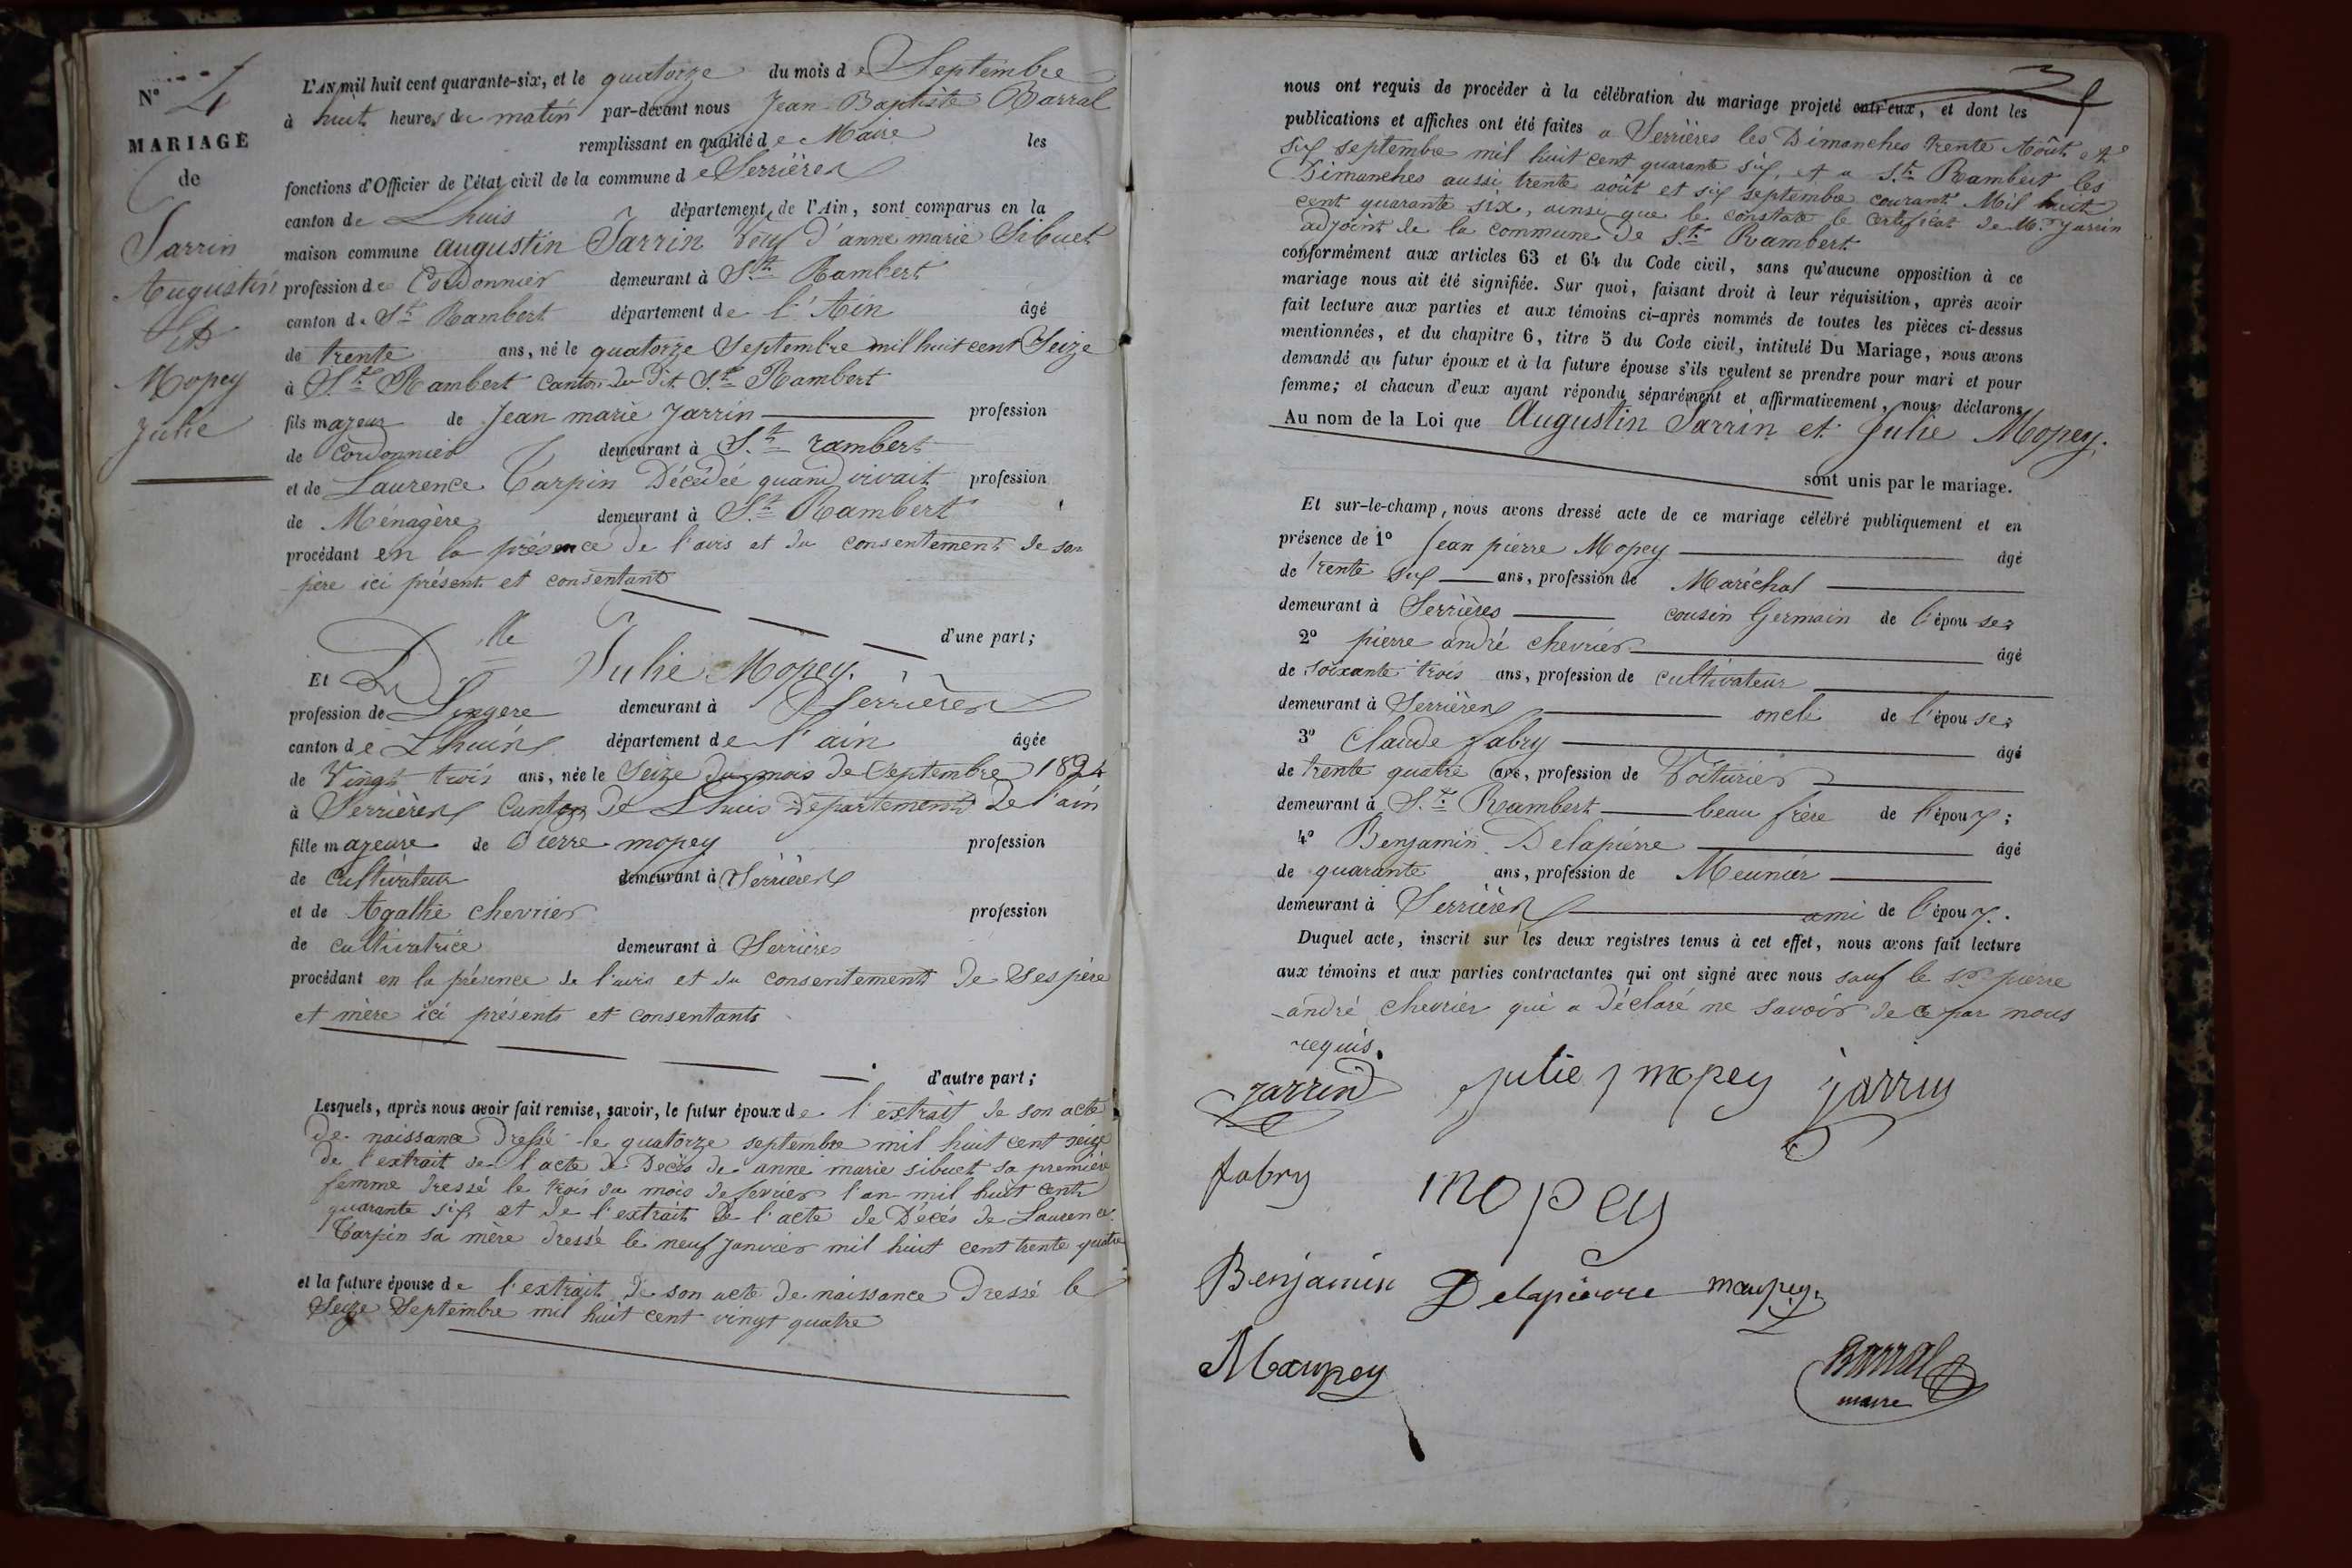 N° 4
MARIAGE
de
Jarrin
Augustin
Et
Mopey
Julie
L'AN mil huit cent quarante-six, et le quatorze du mois de Septembre
à huit heures du matin par-devant nous Jean Baptiste Barral
remplissant en qualité de Maire les
fonctions d'Officier de l'état civil de la commune de Serrières
canton de Lhuis département de l'Ain, sont comparus en la
maison commune augustin Jarrin Veuf d'anne marie Sibuet
profession de Cordonnier demeurant à St. Rambert
canton de St. Rambert département de l'Ain âgé
de trente ans, né le quatorze Septembre mil huit cent Seize
à St. Rambert canton du Dit St. Rambert
fils majeur de Jean marie Jarrin profession
de Cordonnier demeurant à St. rambert
et de Laurence Tarpin Décédée quand vivait profession
de Ménagère demeurant à St. Rambert
procédant en la présence de l'avis et du consentement de son
père ici présent et consentant
d'une part;
Et Dlle Julie Mopey.
profession de Lingère demeurant à Serrières
canton de Lhuis département de l'ain âgée
de Vingt trois ans, née le Seize du mois de Septembre 1824
à Serrières Canton De Lhuis département De l'ain
fille majeure de Pierre mopey profession
de Cultivateur demeurant à Serrières
et de Agathe chevrier profession
de cultivatrice demeurant à Serrières
procédant en la présence de l'avis et du consentement de Ses père
et mère ici présents et consentants
d'autre part;
Lesquels, après nous avoir fait remise, savoir, le futur époux de l'extrait de son acte
de naissance dressé le quatorze septembre mil huit cent seize
de l'extrait de l'acte de Decès de anne marie sibuet sa première
femme dressé le trois du mois de fevrier l'an mil huit cent
quarante six et de l'extrait de l'acte de Décès de Laurence
Tarpin sa mère dressé le neuf Janvier mil huit cent trente quatre
et la future épouse de l'extrait de son acte de naissance Dressé le
Seize Septembre mil huit cent vingt quatre
nous ont requis de procéder à la célébration du mariage projeté entr'eux, et dont les
publications et affiches ont été faites a Serrières les Dimanches trente Août et
six septembre mil huit cent quarante six, et a St. Rambert les
Dimanches aussi trente août et six septembre courant Mil huit
cent quarante six, ainsi que le constate le certificat de Mr. Jarrin
adjoint de la commune de St. Rambert
conformément aux articles 63 et 64 du Code civil, sans qu'aucune opposition à ce
mariage nous ait été signifiée. Sur quoi, faisant droit à leur réquisition, après avoir
fait lecture aux parties et aux témoins ci-après nommés de toutes les pièces ci-dessus
mentionnées, et du chapitre 6, titre 5 du Code civil, intitulé Du Mariage, nous avons
demandé au futur époux et à la future épouse s'ils veulent se prendre pour mari et pour
femme; et chacun d'eux ayant répondu séparément et affirmativement, nous déclarons
Au nom de la Loi que Augustin Jarrin et Julie Mopey.
sont unis par le mariage.
Et sur-le-champ, nous avons dressé acte de ce mariage célébré publiquement et en
présence de 1° Jean pierre Mopey âgé
de trente six ans, profession de Maréchal
demeurant à Serrières cousin Germain de l'épouse;
2° pierre andré chevrier âgé
de soixante trois ans, profession de cultivateur
demeurant à Serrières oncle de l'épouse;
3° Claude fabry âgé
de trente quatre ans, profession de Voiturier
demeurant à St. Rambert beau frère de l'époux;
4° Benjamin Delapierre âgé
de quarante ans, profession de Meunier
demeurant à Serrières ami de l'époux.
Duquel acte, inscrit sur les deux registres tenus à cet effet, nous avons fait lecture
aux témoins et aux parties contractantes qui ont signé avec nous sauf le sr pierre
andré chevrier qui a déclaré ne savoir de ce par nous
requis.
jarrin julie mopey jarrin
fabry mopey
Benjamin Delapierre maupey
Maupey
Barral
maire